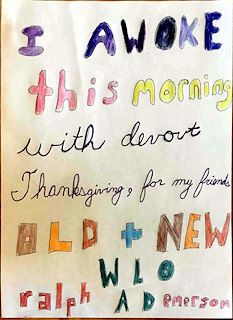 I AWOKE
this morning
with devout
Thanksgiving, for my friends
OLD + NEW
WLO
ralph AD emerson